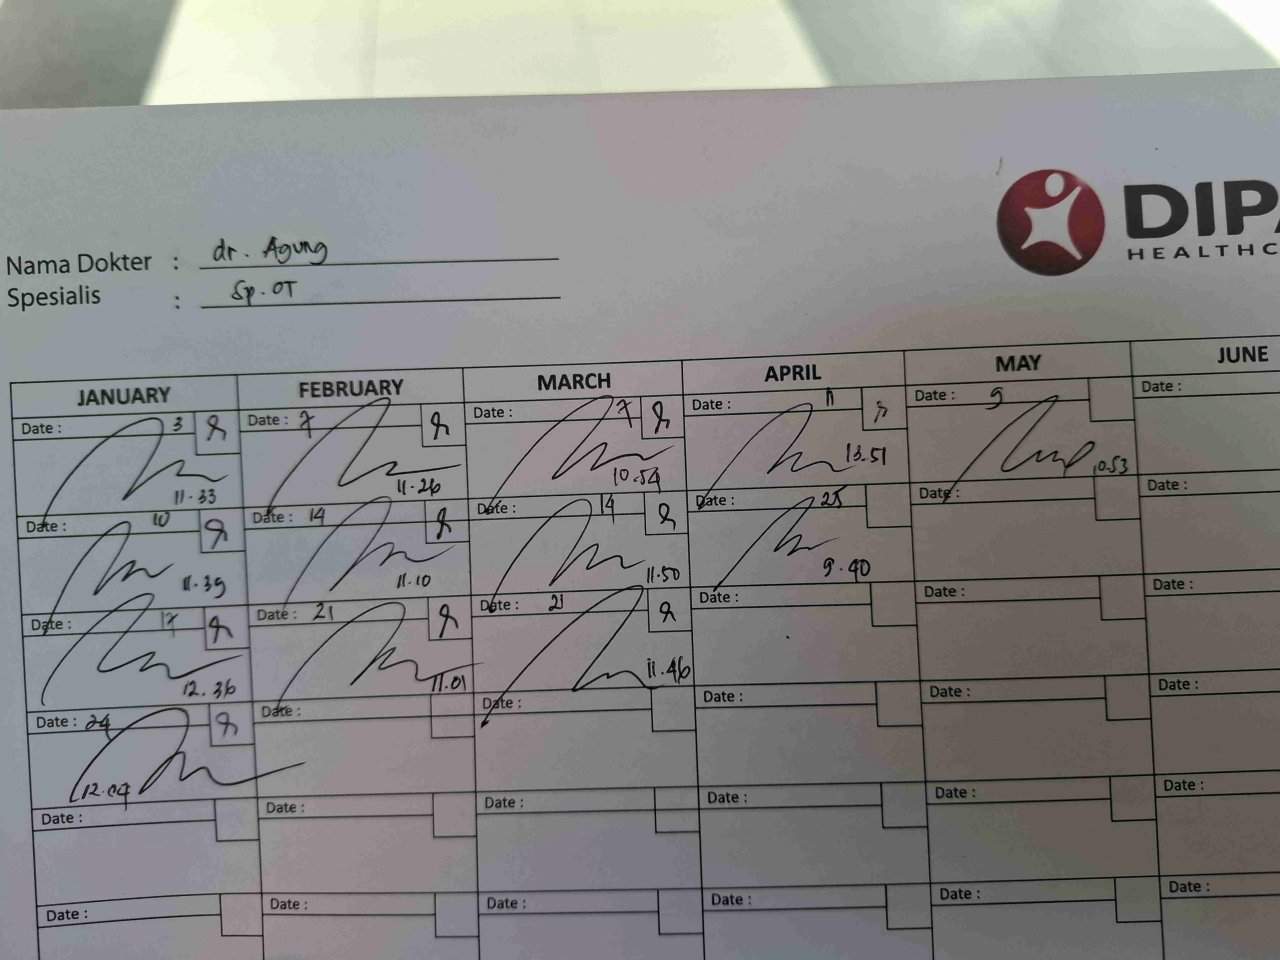 DIPA
HEALTHC
Nama Dokter : dr. Agung
Spesialis : Sp. OT
JANUARY FEBRUARY MARCH APRIL MAY JUNE
Date : 3 Date : 7 Date : 7 Date : 11 Date : 9 Date :
11.33 11.26 10.54 13.51 10.53
Date : 10 Date : 14 Date : 14 Date : 25 Date : Date :
11.39 11.10 11.50 9.40
Date : 17 Date : 21 Date : 21 Date : Date : Date :
12.36 11.01 11.46
Date : 24 Date : Date : Date : Date : Date :
12.04
Date : Date : Date : Date : Date : Date :
Date : Date : Date : Date : Date : Date :